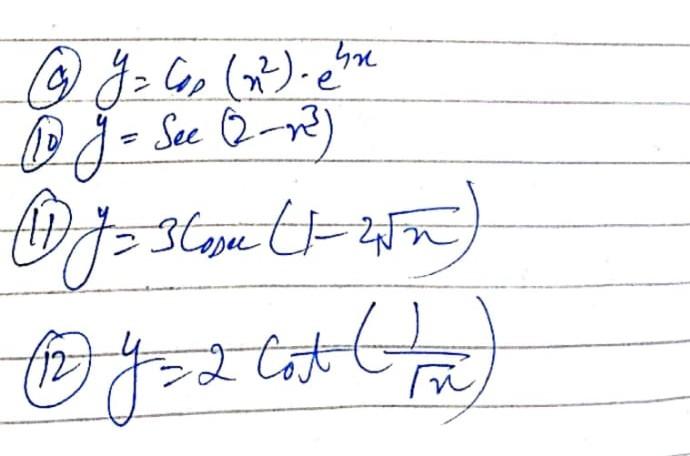 ⑨ y = Cos (x²)·e^4x
⑩ y = Sec (2-x³)
⑪ y = 3Cosec (1-2√x)
⑫ y = 2 Cot (1/√x)